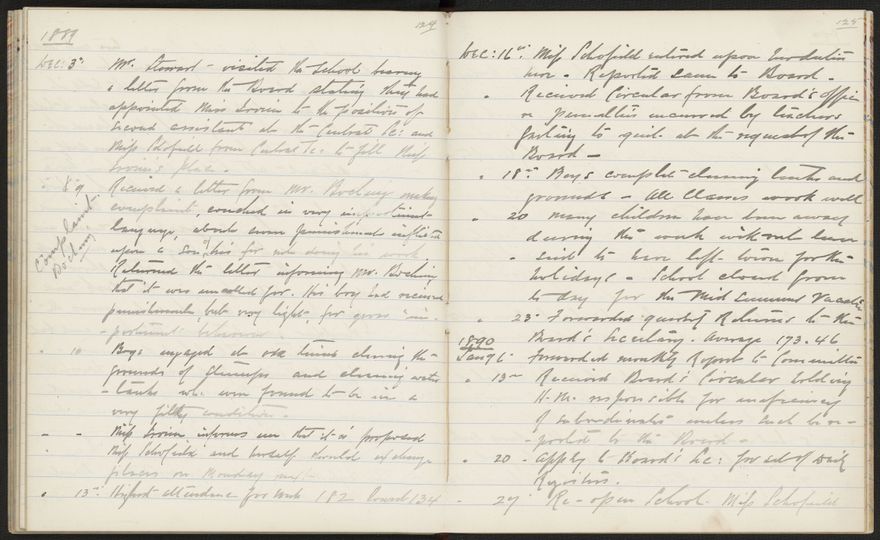 124
1889
Dec: 3rd Mr. Stewart - visited the School bearing
a letter from the Board stating they had
appointed Miss to the position of
second assistant at the Central Sc: and
Miss Schofield from Central Sc. to fill Miss
place.
" 8-9 Received a letter from Mr. making
complaint, couched in very impertinent
language, about some punishment inflicted
upon a son of his for not doing his work
Returned the letter informing Mr.
that it was uncalled for. His boy had received
punishment but very light, for gross im-
-pertinent behaviour.
Complaint
" 10 Boys engaged at odd times clearing the
grounds of and cleaning water
-tanks wh. were found to be in a
very filthy condition.
" " Miss informs me that it is proposed
Miss Schofield and herself should exchange
places on Monday next.
" 13th Highest attendance for week 182 Lowest 134
125
Dec: 16th: Miss Schofield entered upon her duties
here - Reported same to Board -
" Received Circular from Board's Office
re penalties incurred by teachers
failing to quit at the request of the
Board -
" 18th Boys complete cleaning tanks and
grounds - All Classes work well
" 20 Many children have been away
during the week without leave
- said to have left town for the
holidays - School closed from
to day for the Mid Summer Vacation
" 23rd Forwarded quarterly Returns to the
Board's Secretary. Average 173.46
1890
Jany 6 Forwarded monthly Report to Committee
" 13th Received Board's Circular holding
H. Mr. responsible for inefficiency
of subordinates unless such be re-
-ported to the Board -
" 20 - Apply to Board's Sec: for set of Daily
Registers.
- 27 Re-open School. Miss Schofield